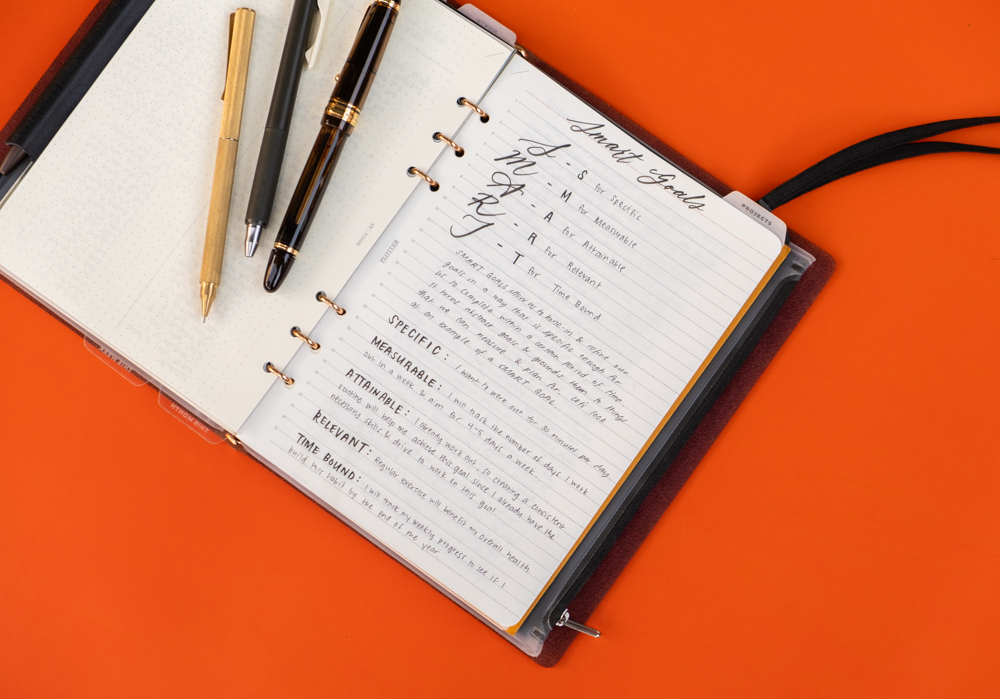 Smart Goals
S - S for Specific
M - M for Measurable
A - A for Attainable
R - R for Relevant
T - T for Time Bound
SMART GOALS allow us to hone-in & refine our
goals in a way that is specific enough for
us to complete within a certain period of time.
It turns abstract goals & grounds them to things
that we can measure & plan for. Let's look
at an example of a SMART GOAL.
SPECIFIC: I want to work out for 30 minutes per day.
MEASURABLE: I will track the number of days I work
out in a week & aim for 4-5 days a week.
ATTAINABLE: I already work out, so creating a consistent
routine will help me achieve this goal since I already have the
necessary skills & drive to work on this goal
RELEVANT: Regular exercise will benefit my overall health.
TIME BOUND: I will track my weekly progress to see if I
build this habit by the end of the year
PROJECTS
PLOTTER